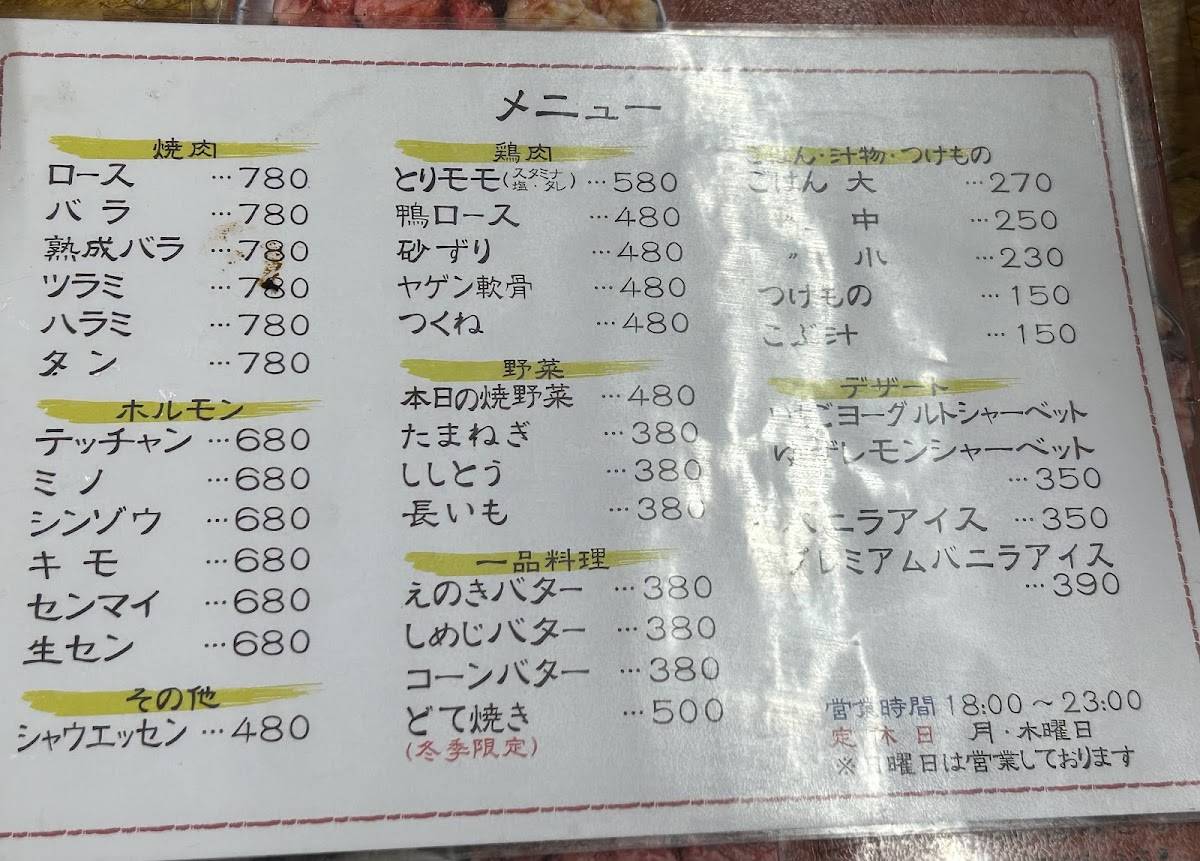 メニュー
焼肉
ロース …780
バラ …780
熟成バラ …780
ツラミ …780
ハラミ …780
タン …780
ホルモン
テッチャン …680
ミノ …680
シンゾウ …680
キモ …680
センマイ …680
生セン …680
その他
シャウエッセン …480
鶏肉
とりモモ(スタミナ塩・タレ) …580
鴨ロース …480
砂ずり …480
ヤゲン軟骨 …480
つくね …480
野菜
本日の焼野菜 …480
たまねぎ …380
ししとう …380
長いも …380
一品料理
えのきバター …380
しめじバター …380
コーンバター …380
どて焼き …500
(冬季限定)
ごはん・汁物・つけもの
ごはん 大 …270
〃 中 …250
〃 小 …230
つけもの …150
こぶ汁 …150
デザート
いちごヨーグルトシャーベット
ゆずレモンシャーベット
…350
バニラアイス …350
プレミアムバニラアイス
…390
営業時間 18:00～23:00
定休日 月・木曜日
※日曜日は営業しております